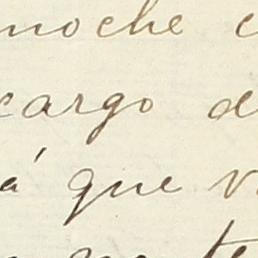 noche
cargo d
á que v